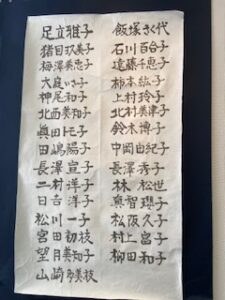 足立雅子 飯塚さく代
猪目玖美子 石川百合子
梅澤美恵子 遠藤千恵子
大庭いさ子 柿本紘子
神尾和子 上村玲子
北西美知子 北村美津子
眞田トモ子 鈴木博子
田嶋陽子 中岡由紀子
長澤宣子 長澤秀子
二村洋子 林松世
日吉洋子 眞智瓔子
松川一子 松阪久子
宮田初枝 村上富子
望月美知子 柳田和子
山崎多美枝